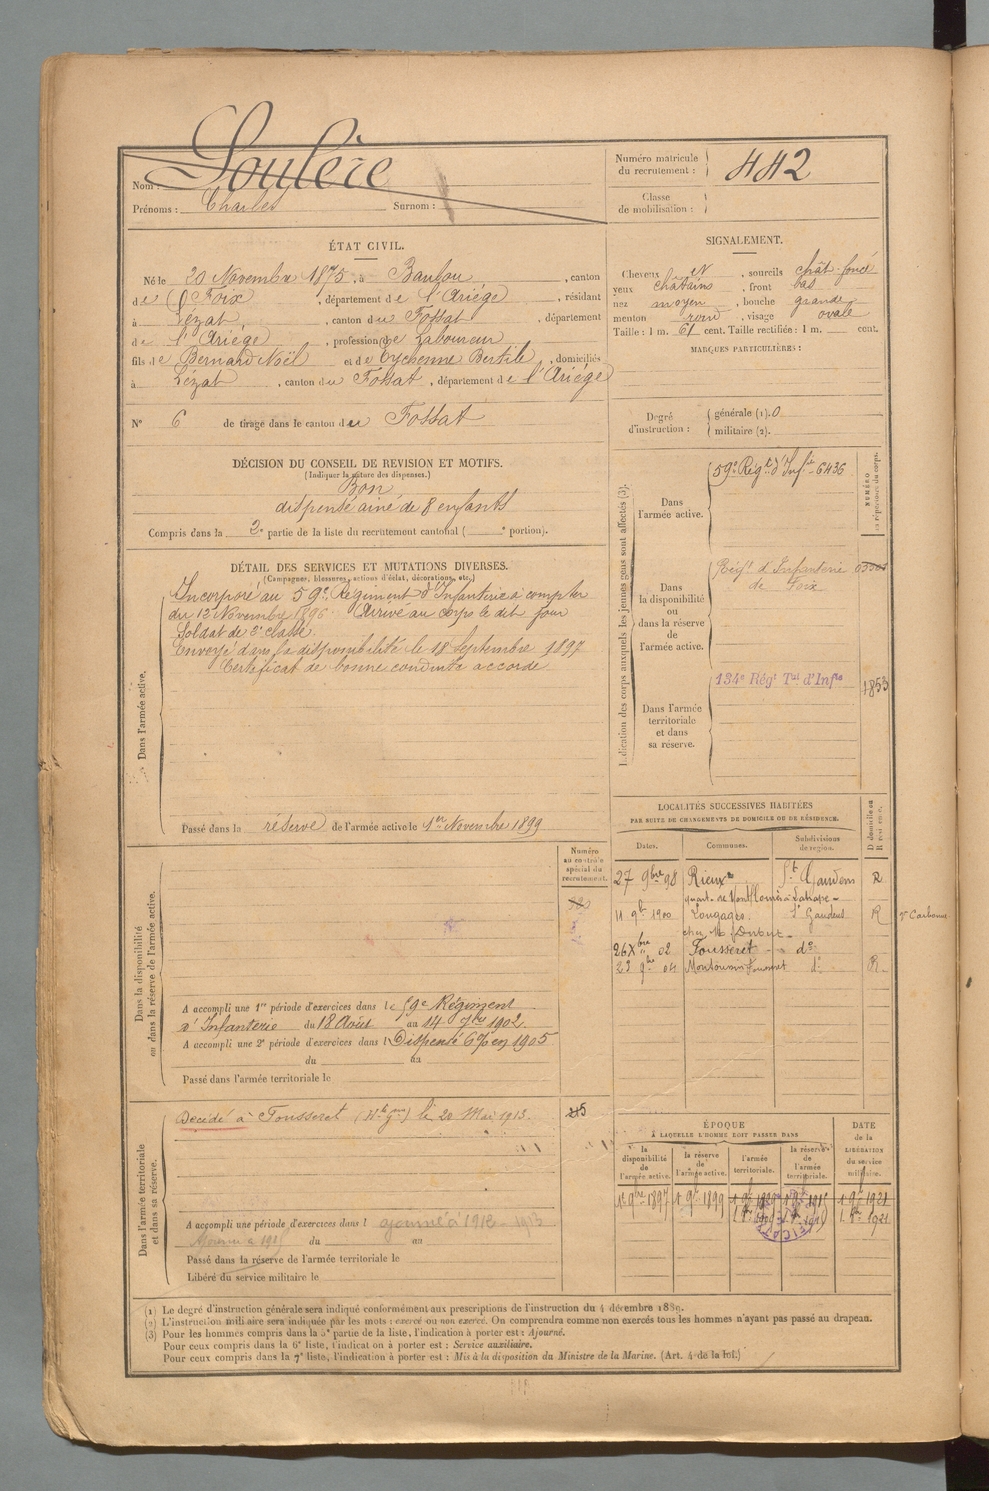 Nom : Soulère
Prénoms : Charles Surnom :
Numéro matricule du recrutement : 442
Classe de mobilisation :
ÉTAT CIVIL.
Né le 20 Novembre 1875, à Baulou, canton
de Foix, département de l'Ariége, résidant
à Lézat, canton du Fossat, département
de l'Ariége, profession de Laboureur
fils de Bernard Noël et de Eychenne Bertile, domiciliés
à Lézat, canton du Fossat, département de l'Ariége
N° 6 de tirage dans le canton du Fossat
SIGNALEMENT.
Cheveux et, sourcils chât-foncé
yeux châtains, front bas
nez moyen, bouche grande
menton rond, visage ovale
Taille : 1 m. 61 cent. Taille rectifiée : 1 m. cent.
MARQUES PARTICULIÈRES :
Degré d'instruction : générale (1). 0
militaire (2).
DÉCISION DU CONSEIL DE REVISION ET MOTIFS.
(Indiquer la nature des dispenses.)
Bon
dispensé ainé de 8 enfants
Compris dans la 2e partie de la liste du recrutement cantonal ( e portion).
DÉTAIL DES SERVICES ET MUTATIONS DIVERSES.
(Campagnes, blessures, actions d'éclat, décorations, etc.)
Dans l'armée active.
Incorporé au 59e Régiment d'Infanterie à compter
du 12 Novembre 1896. Arrivé au corps le dit jour
Soldat de 2e classe.
Envoyé dans la disponibilité le 18 Septembre 1897
Certificat de bonne conduite accordé
Passé dans la réserve de l'armée active le 1er Novembre 1899
Indication des corps auxquels les jeunes gens sont affectés (3).
NUMÉRO au répertoire du corps.
Dans l'armée active.
59e Régt d'Infie 6436
Dans la disponibilité ou dans la réserve de l'armée active.
Régt d'Infanterie
de Foix
Dans l'armée territoriale et dans sa réserve.
134e Régt Tal d'Infie 1853
LOCALITÉS SUCCESSIVES HABITÉES
PAR SUITE DE CHANGEMENTS DE DOMICILE OU DE RÉSIDENCE.
Dates. Communes. Subdivisions de région. D domicile ou R résidence.
27 9bre 98 Rieux St Gaudens R
quart. de Montflourès à Lahage
11 9b 1900 Longages St Gaudens R
chez M. Dutout
26 Xbre 02 Fousseret do
23 9bre 04 Montoussin Fousseret do R
Dans la disponibilité ou dans la réserve de l'armée active.
Numéro au contrôle spécial du recrutement.
A accompli une 1re période d'exercices dans le 59e Régiment
d'Infanterie du 18 Août au 14 7bre 1902
A accompli une 2e période d'exercices dans l Dispensé 6% en 1905
du au
Passé dans l'armée territoriale le
Dans l'armée territoriale et dans sa réserve.
Décédé à Fousseret (Hte Gne) le 20 Mai 1913.
A accompli une période d'exercices dans l ajourné à 1912 - 1913
du au
Passé dans la réserve de l'armée territoriale le
Libéré du service militaire le
ÉPOQUE
A LAQUELLE L'HOMME DOIT PASSER DANS
la disponibilité de l'armée active. la réserve de l'armée active. l'armée territoriale. la réserve de l'armée territoriale.
DATE de la LIBÉRATION du service militaire.
1er 9bre 1897 1 9b 1899 1 9b 1915 1 9b 1921
(1) Le degré d'instruction générale sera indiqué conformément aux prescriptions de l'instruction du 4 décembre 1889.
(2) L'instruction militaire sera indiquée par les mots : exercé ou non exercé. On comprendra comme non exercés tous les hommes n'ayant pas passé au drapeau.
(3) Pour les hommes compris dans la 5e partie de la liste, l'indication à porter est : Ajourné.
Pour ceux compris dans la 6e liste, l'indication à porter est : Service auxiliaire.
Pour ceux compris dans la 7e liste, l'indication à porter est : Mis à la disposition du Ministre de la Marine. (Art. 4 de la loi.)